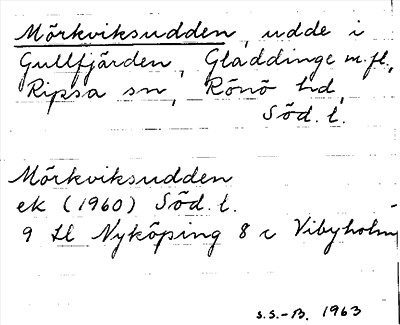 Mörkviksudden, udde i
Gullfjärden, Gläddinge m.fl.,
Ripsa sn, Rönö hd,
Söd. l.
Mörkviksudden
ek (1960) Söd. l.
9 Nyköping 8 c Vibyholm
S.S.-B. 1963